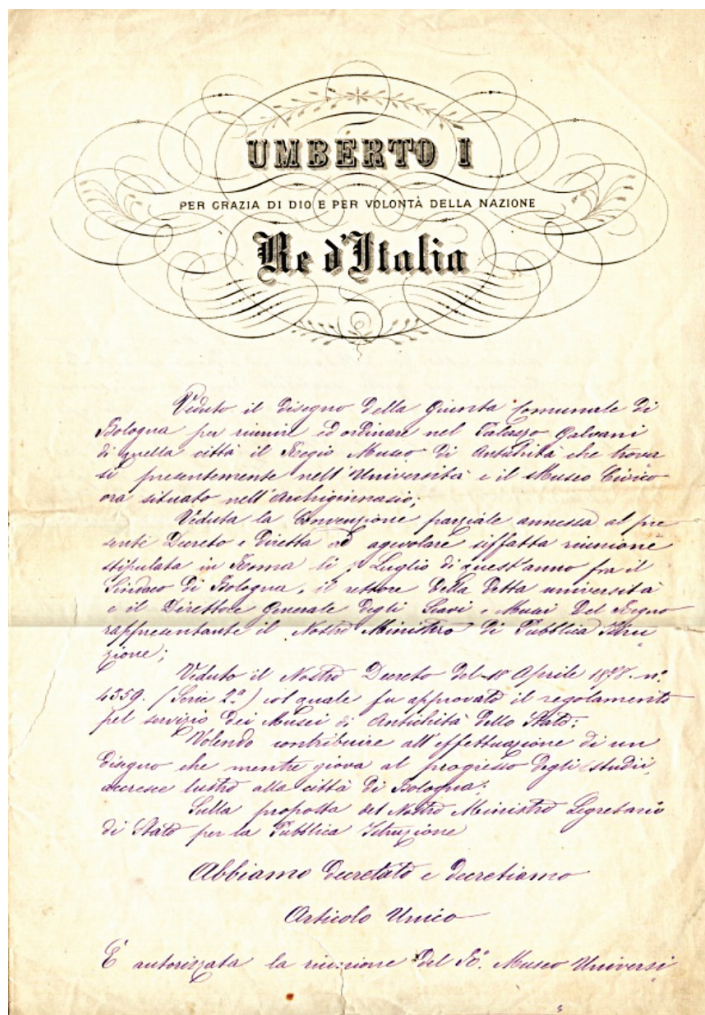 UMBERTO I
PER GRAZIA DI DIO E PER VOLONTÀ DELLA NAZIONE
Re d'Italia
Veduto il disegno della Giunta Comunale di
Bologna per riunire ed ordinare nel Palazzo Galvani
di quella città il Regio Museo di Antichità che trova
si presentemente nell'Università e il Museo Civico
ora situato nell'Archiginnasio;
Veduta la Convenzione parziale annessa al pre
sente Decreto e diretta ad agevolare siffatta riunione
stipulata in Roma li Luglio di quest'anno fra il
Sindaco di Bologna, il rettore della detta università
e il Direttore Generale degli Scavi e Musei del Regno
rappresentante il Nostro Ministro di Pubblica Istru
zione;
Veduto il Nostro Decreto del 18 Aprile n.°
4359. (Serie 2.a) col quale fu approvato il regolamento
pel servizio dei Musei di Antichità dello Stato;
Volendo contribuire all'effettuazione di un
disegno che mentre giova al progresso degli studii,
accresce lustro alla città di Bologna;
Sulla proposta del Nostro Ministro Segretario
di Stato per la Pubblica Istruzione
Abbiamo decretato e decretiamo
Articolo Unico
E' autorizzata la riunione del R.° Museo Universi